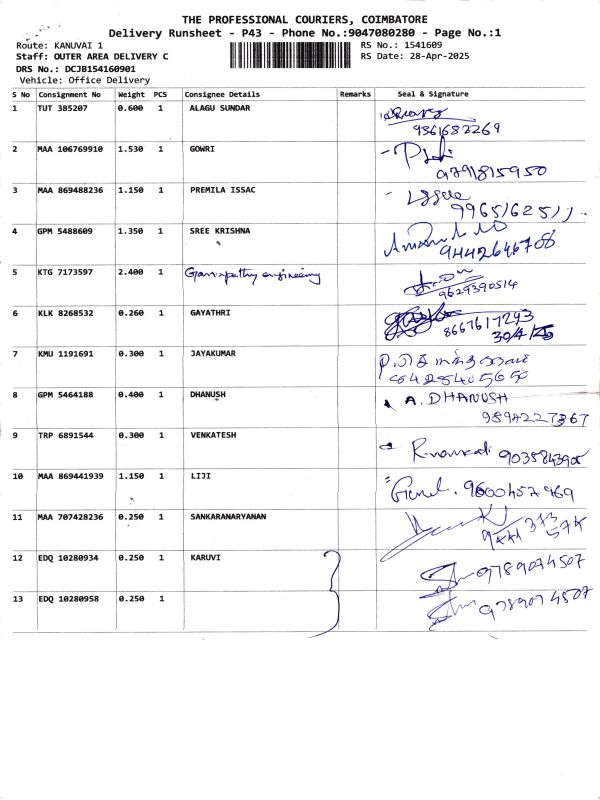 THE PROFESSIONAL COURIERS, COIMBATORE
Delivery Runsheet - P43 - Phone No.:9047080280 - Page No.:1
Route: KANUVAI 1 RS No.: 1541609
Staff: OUTER AREA DELIVERY C RS Date: 28-Apr-2025
DRS No.: DCJB154160901
Vehicle: Office Delivery
S No Consignment No Weight PCS Consignee Details Remarks Seal & Signature
1 TUT 385207 0.600 1 ALAGU SUNDAR
9361682269
2 MAA 106769910 1.530 1 GOWRI
9791815950
3 MAA 869488236 1.150 1 PREMILA ISSAC
4 GPM 5488609 1.350 1 SREE KRISHNA
9442646708
5 KTG 7173597 2.400 1 Ganapathy engineering
9629390514
6 KLK 8268532 0.260 1 GAYATHRI
8667617293
30/4/25
7 KMU 1191691 0.300 1 JAYAKUMAR
8 GPM 5464188 0.400 1 DHANUSH A. DHANUSH
9894227367
9 TRP 6891544 0.300 1 VENKATESH
10 MAA 869441939 1.150 1 LIJI
9600457969
11 MAA 707428236 0.250 1 SANKARANARYANAN
12 EDQ 10280934 0.250 1 KARUVI 9789074507
13 EDQ 10280958 0.250 1 9789074507